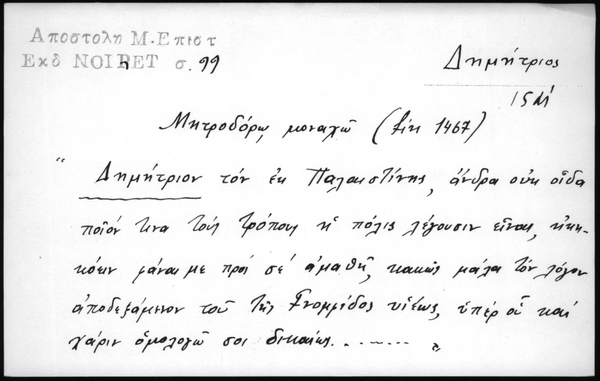 Αποστολη Μ. Επιστ
Εκδ NOIRET σ. 99
Δημήτριος
15Μ
Μητροδόρῳ μοναχῷ (fin 1467)
" Δημήτριον τόν ἐκ Παλαιστίνης, ἄνδρα οὐκ οἶδα
ποῖόν τινα τούς τρόπους ἡ πόλις λέγουσιν εἶναι,
με πρός σέ ἀμαθῆ, κακῶς μάλα τόν λόγον
ἀποδεξάμενον τοῦ τῆς υἱέως, ὑπέρ οὗ καί
χάριν ὁμολογῶ σοι δικαίως. . - . - - - "